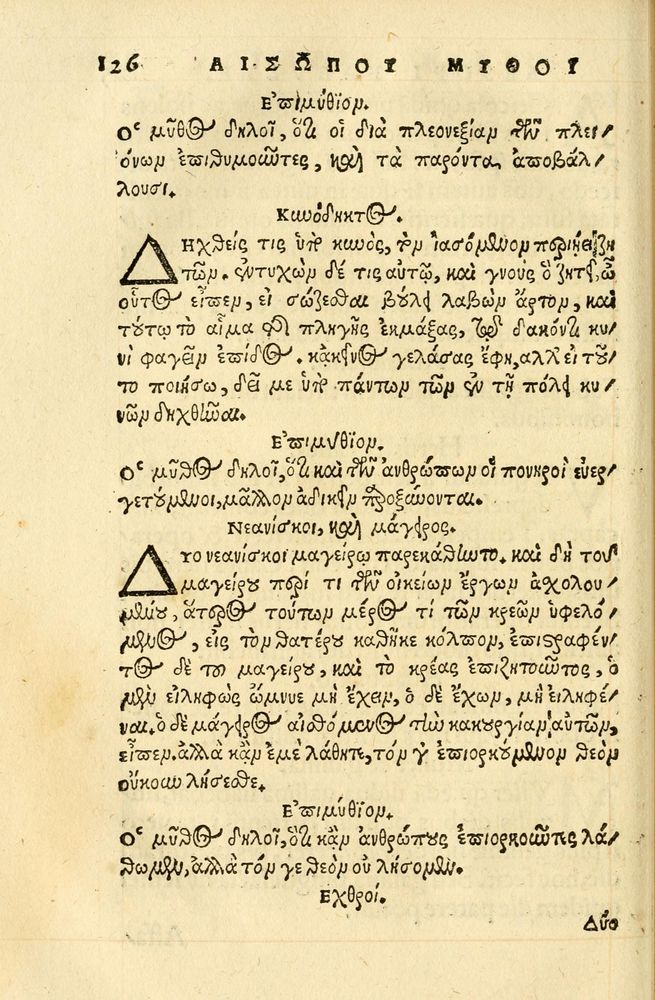 126 ΑΙΣΩΠΟΥ ΜΥΘΟΙ
Ἐπιμύθιον.
Ὁ μῦθος δηλοῖ, ὅτι οἱ διὰ πλεονεξίαν τῶν πλει-
όνων ἐπιθυμοῦντες, καὶ τὰ παρόντα ἀποβάλ-
λουσι.
Κυνόδηκτος.
ΔΗχθείς τις ὑπὸ κυνὸς, τὸν ἰασόμενον περιῄει ζη
τῶν. ἐντυχὼν δέ τις αὐτῷ, καὶ γνοὺς ὃ ζητεῖ, ὦ
οὗτος εἶπεν, εἰ σώζεσθαι βούλει λαβὼν ἄρτον, καὶ
τούτῳ τὸ αἷμα τῆς πληγῆς ἐκμάξας, τῷ δακόντι κυ-
νὶ φαγεῖν ἐπίδος. κἀκεῖνος γελάσας ἔφη, ἀλλ' εἰ τοῦ-
το ποιήσω, δεῖ με ὑπὸ πάντων τῶν ἐν τῇ πόλει κυ-
νῶν δηχθῆναι.
Ἐπιμύθιον.
Ὁ μῦθος δηλοῖ, ὅτι καὶ τῶν ἀνθρώπων οἱ πονηροὶ εὐερ-
γετούμενοι, μᾶλλον ἀδικεῖν παροξύνονται.
Νεανίσκοι, καὶ μάγειρος.
ΔΥο νεανίσκοι μαγείρῳ παρεκάθηντο. καὶ δὴ τοῦ
μαγείρου περί τι τῶν οἰκείων ἔργων ἀσχολου-
μένου, ἅτερος τούτων μέρος τι τῶν κρεῶν ὑφελό-
μενος, εἰς τὸν θατέρου καθῆκε κόλπον, ἐπιστραφέν-
τος δὲ τοῦ μαγείρου, καὶ τὸ κρέας ἐπιζητοῦντος, ὁ
μὲν εἰληφὼς ὤμνυε μὴ ἔχειν, ὁ δὲ ἔχων, μὴ εἰληφέ-
ναι. ὁ δὲ μάγειρος αἰσθόμενος τὴν κακουργίαν αὐτῶν,
εἶπεν. ἀλλὰ κἂν ἐμὲ λάθητε, τόν γ' ἐπιορκούμενον θεὸν
οὔκουν λήσεσθε.
Ἐπιμύθιον.
Ὁ μῦθος δηλοῖ, ὅτι κἂν ἀνθρώπους ἐπιορκοῦντες λά-
θωμεν, ἀλλὰ τόν γε θεὸν οὐ λήσομεν.
Ἐχθροί.
Δύο